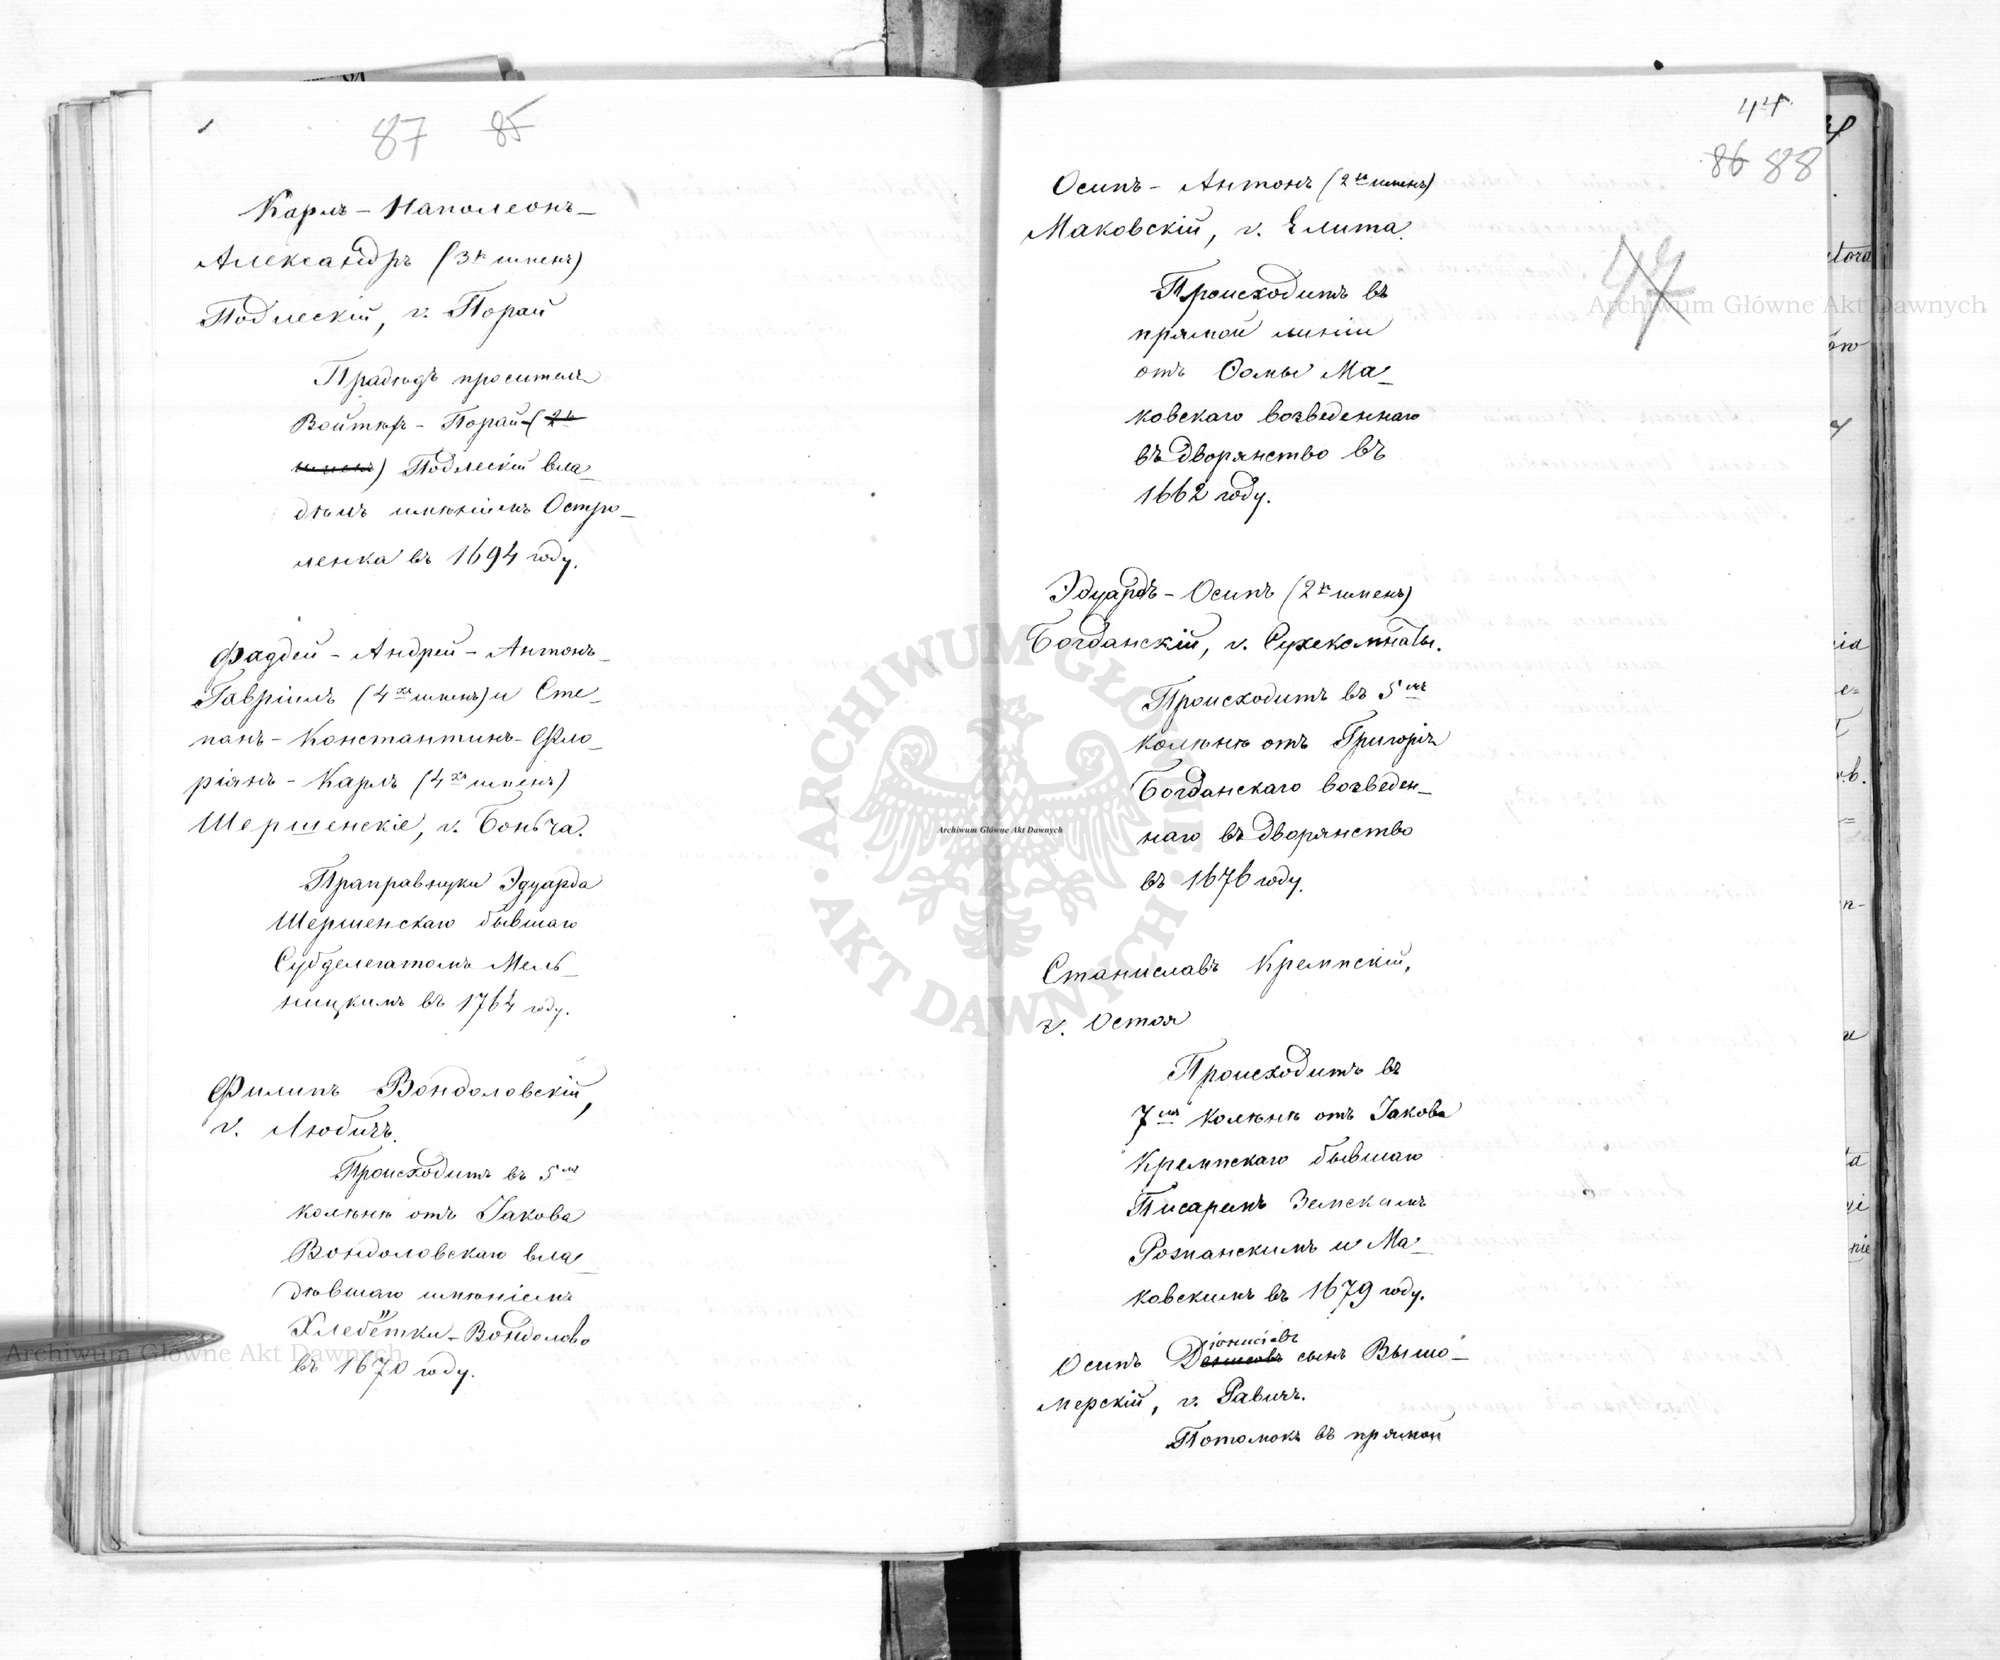 87 85
Карлъ-Наполеонъ-
Александръ (3хъ именъ)
Подлескій, г. Порай
Прадѣдъ просителя
Войтѣхъ-Порай (2хъ
именъ) Подлескій вла-
дѣлъ имѣніемъ Остро-
ленка въ 1694 году.
Фаддей-Андрей-Антонъ-
Гавріилъ (4хъ именъ) и Сте-
панъ-Константинъ-Фло-
ріянъ-Карлъ (4хъ именъ)
Шершенскіе, г. Боньча.
Праправнуки Эдуарда
Шершенскаго бывшаго
Субделегатомъ Мель-
ницкимъ въ 1764 году.
Филипъ Вондоловскій,
г. Любичъ.
Происходитъ въ 5мъ
колѣнѣ отъ Іакова
Вондоловскаго вла-
дѣвшаго имѣніемъ
Хлебётки-Вондолово
въ 1670 году.
44
86 88
44
Осипъ-Антонъ (2хъ именъ)
Маковскій, г. Елита.
Происходитъ въ
прямой линіи
отъ Ѳомы Ма-
ковскаго возведеннаго
въ дворянство въ
1662 году.
Эдуардъ-Осипъ (2хъ именъ)
Богданскій, г. Сухекомнаты.
Происходитъ въ 5мъ
колѣнѣ отъ Григорія
Богданскаго возведен-
наго въ дворянство
въ 1676 году.
Станиславъ Кремпскій,
г. Остоя
Происходитъ въ
7мъ колѣнѣ отъ Іакова
Кремпскаго бывшаго
Писаремъ Земскимъ
Рознанскимъ и Ма-
ковскимъ въ 1679 году.
іонисіевъ
Осипъ Денисовъ сынъ Вышо-
мерскій, г. Равичъ.
Потомокъ въ прямой
Archiwum Główne Akt Dawnych
ARCHIWUM GŁÓWNE AKT DAWNYCH
Archiwum Główne Akt Dawnych
Archiwum Główne Akt Dawnych